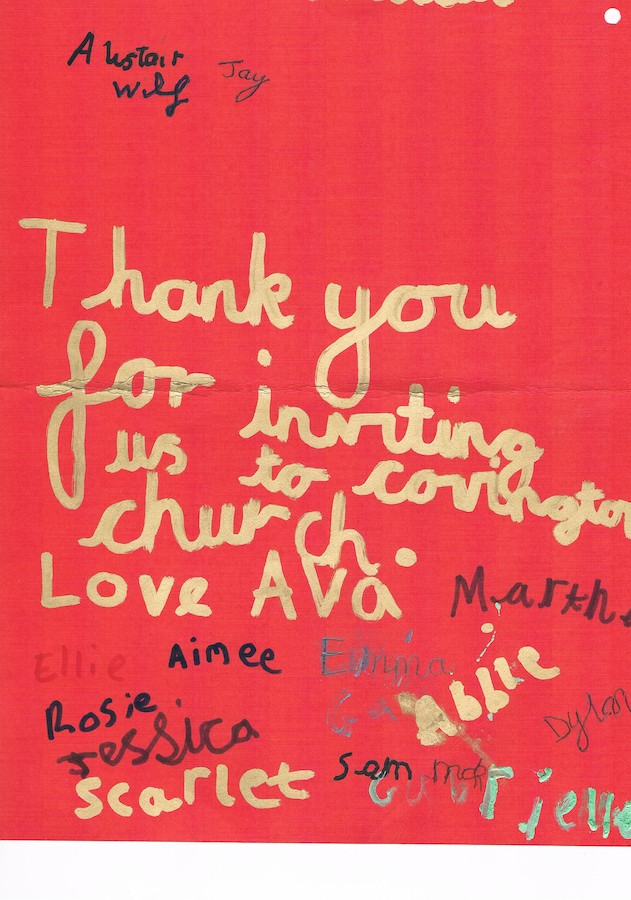 Alistair Jay
Wilf
Thank you
for inviting
us to covington
church.
Love Ava
Martha
Ellie Aimee Emma
Abbie
Rosie
Dylan
Jessica
Sam
Scarlet